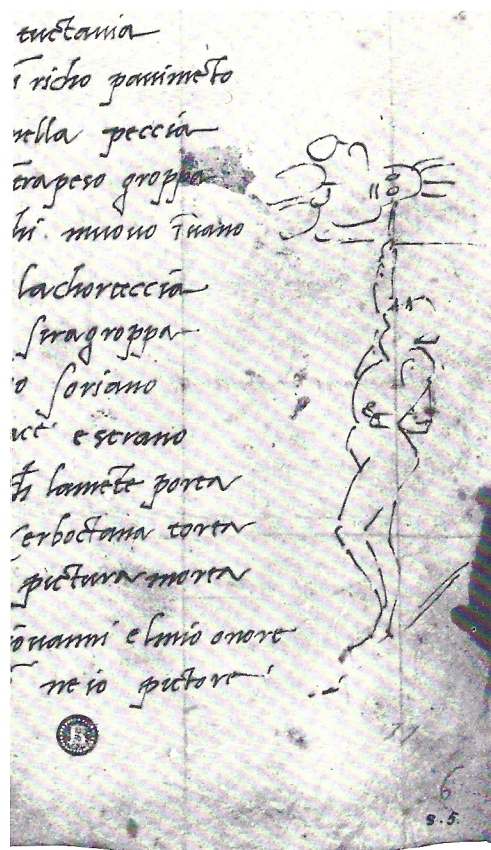 tuctavia
richo pavimēto
nella peccia
trapeso groppa
muovo īvano
lachorteccia
siragroppa
soriano
e strano
ch̄ lamēte porta
cerboctana torta
pictura morta
giovanni elmio onore
ne io pictore
6
8.5.